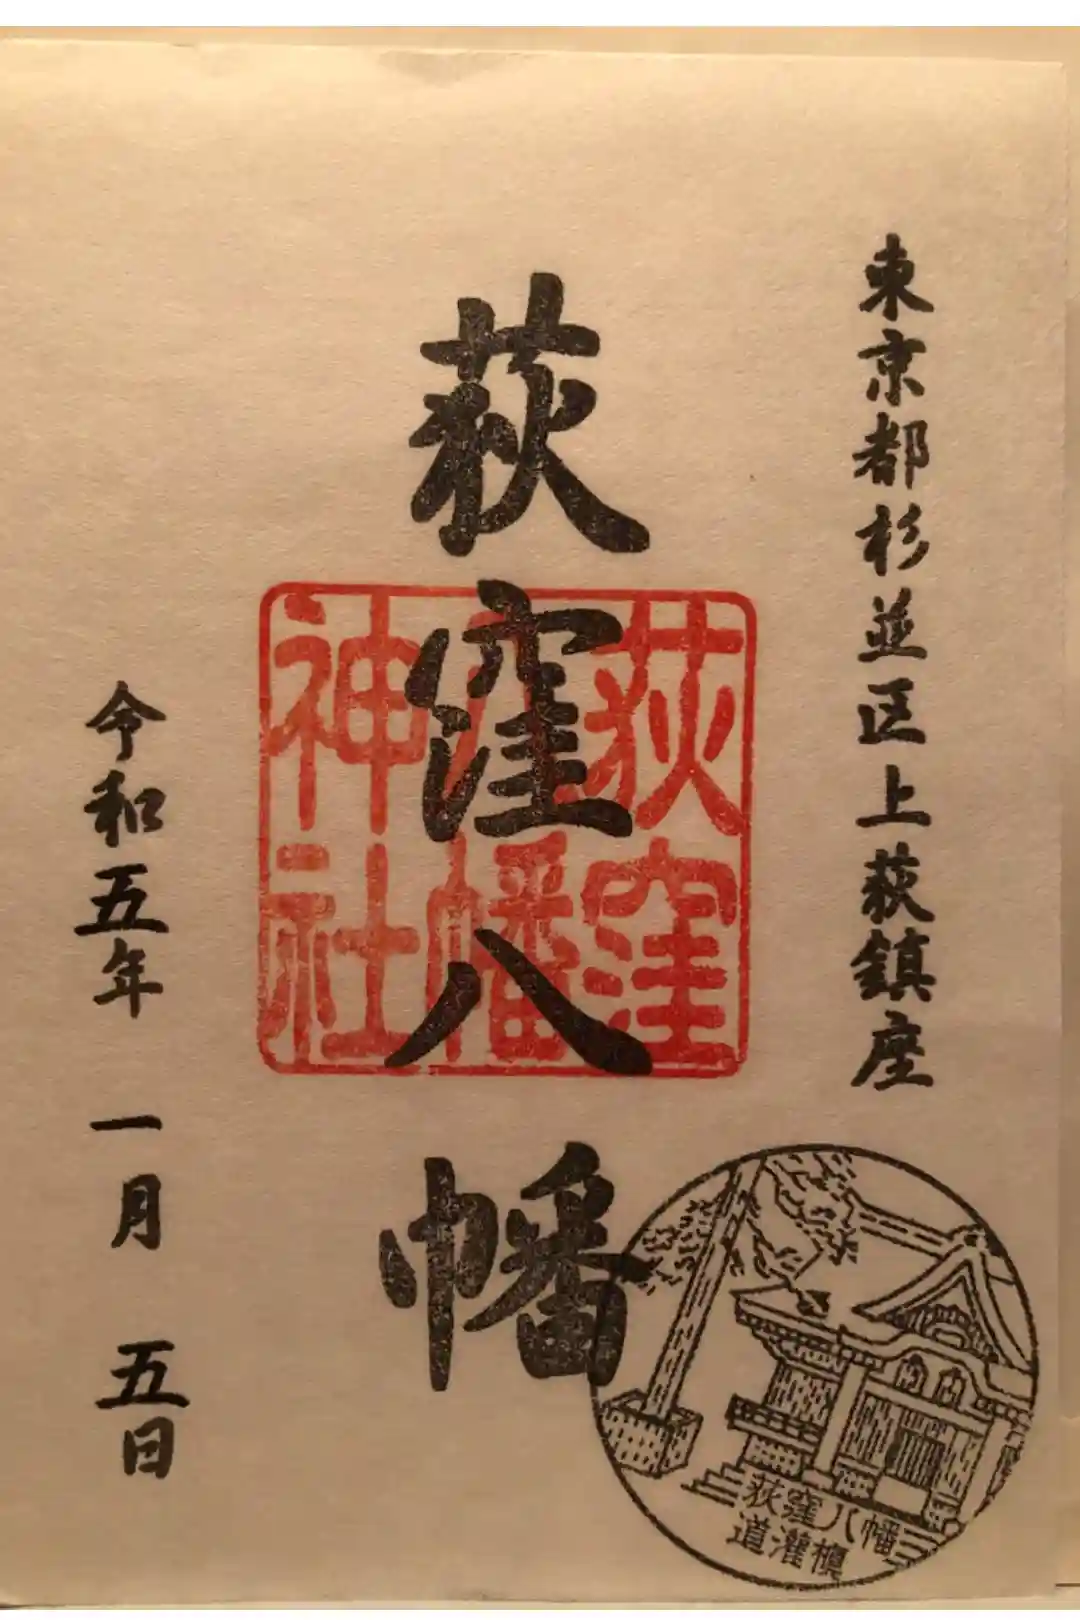 東京都杉並区上荻鎮座
荻窪八幡
荻窪
八幡
神社
令和五年 一月 五日
荻窪八幡
道灌槙